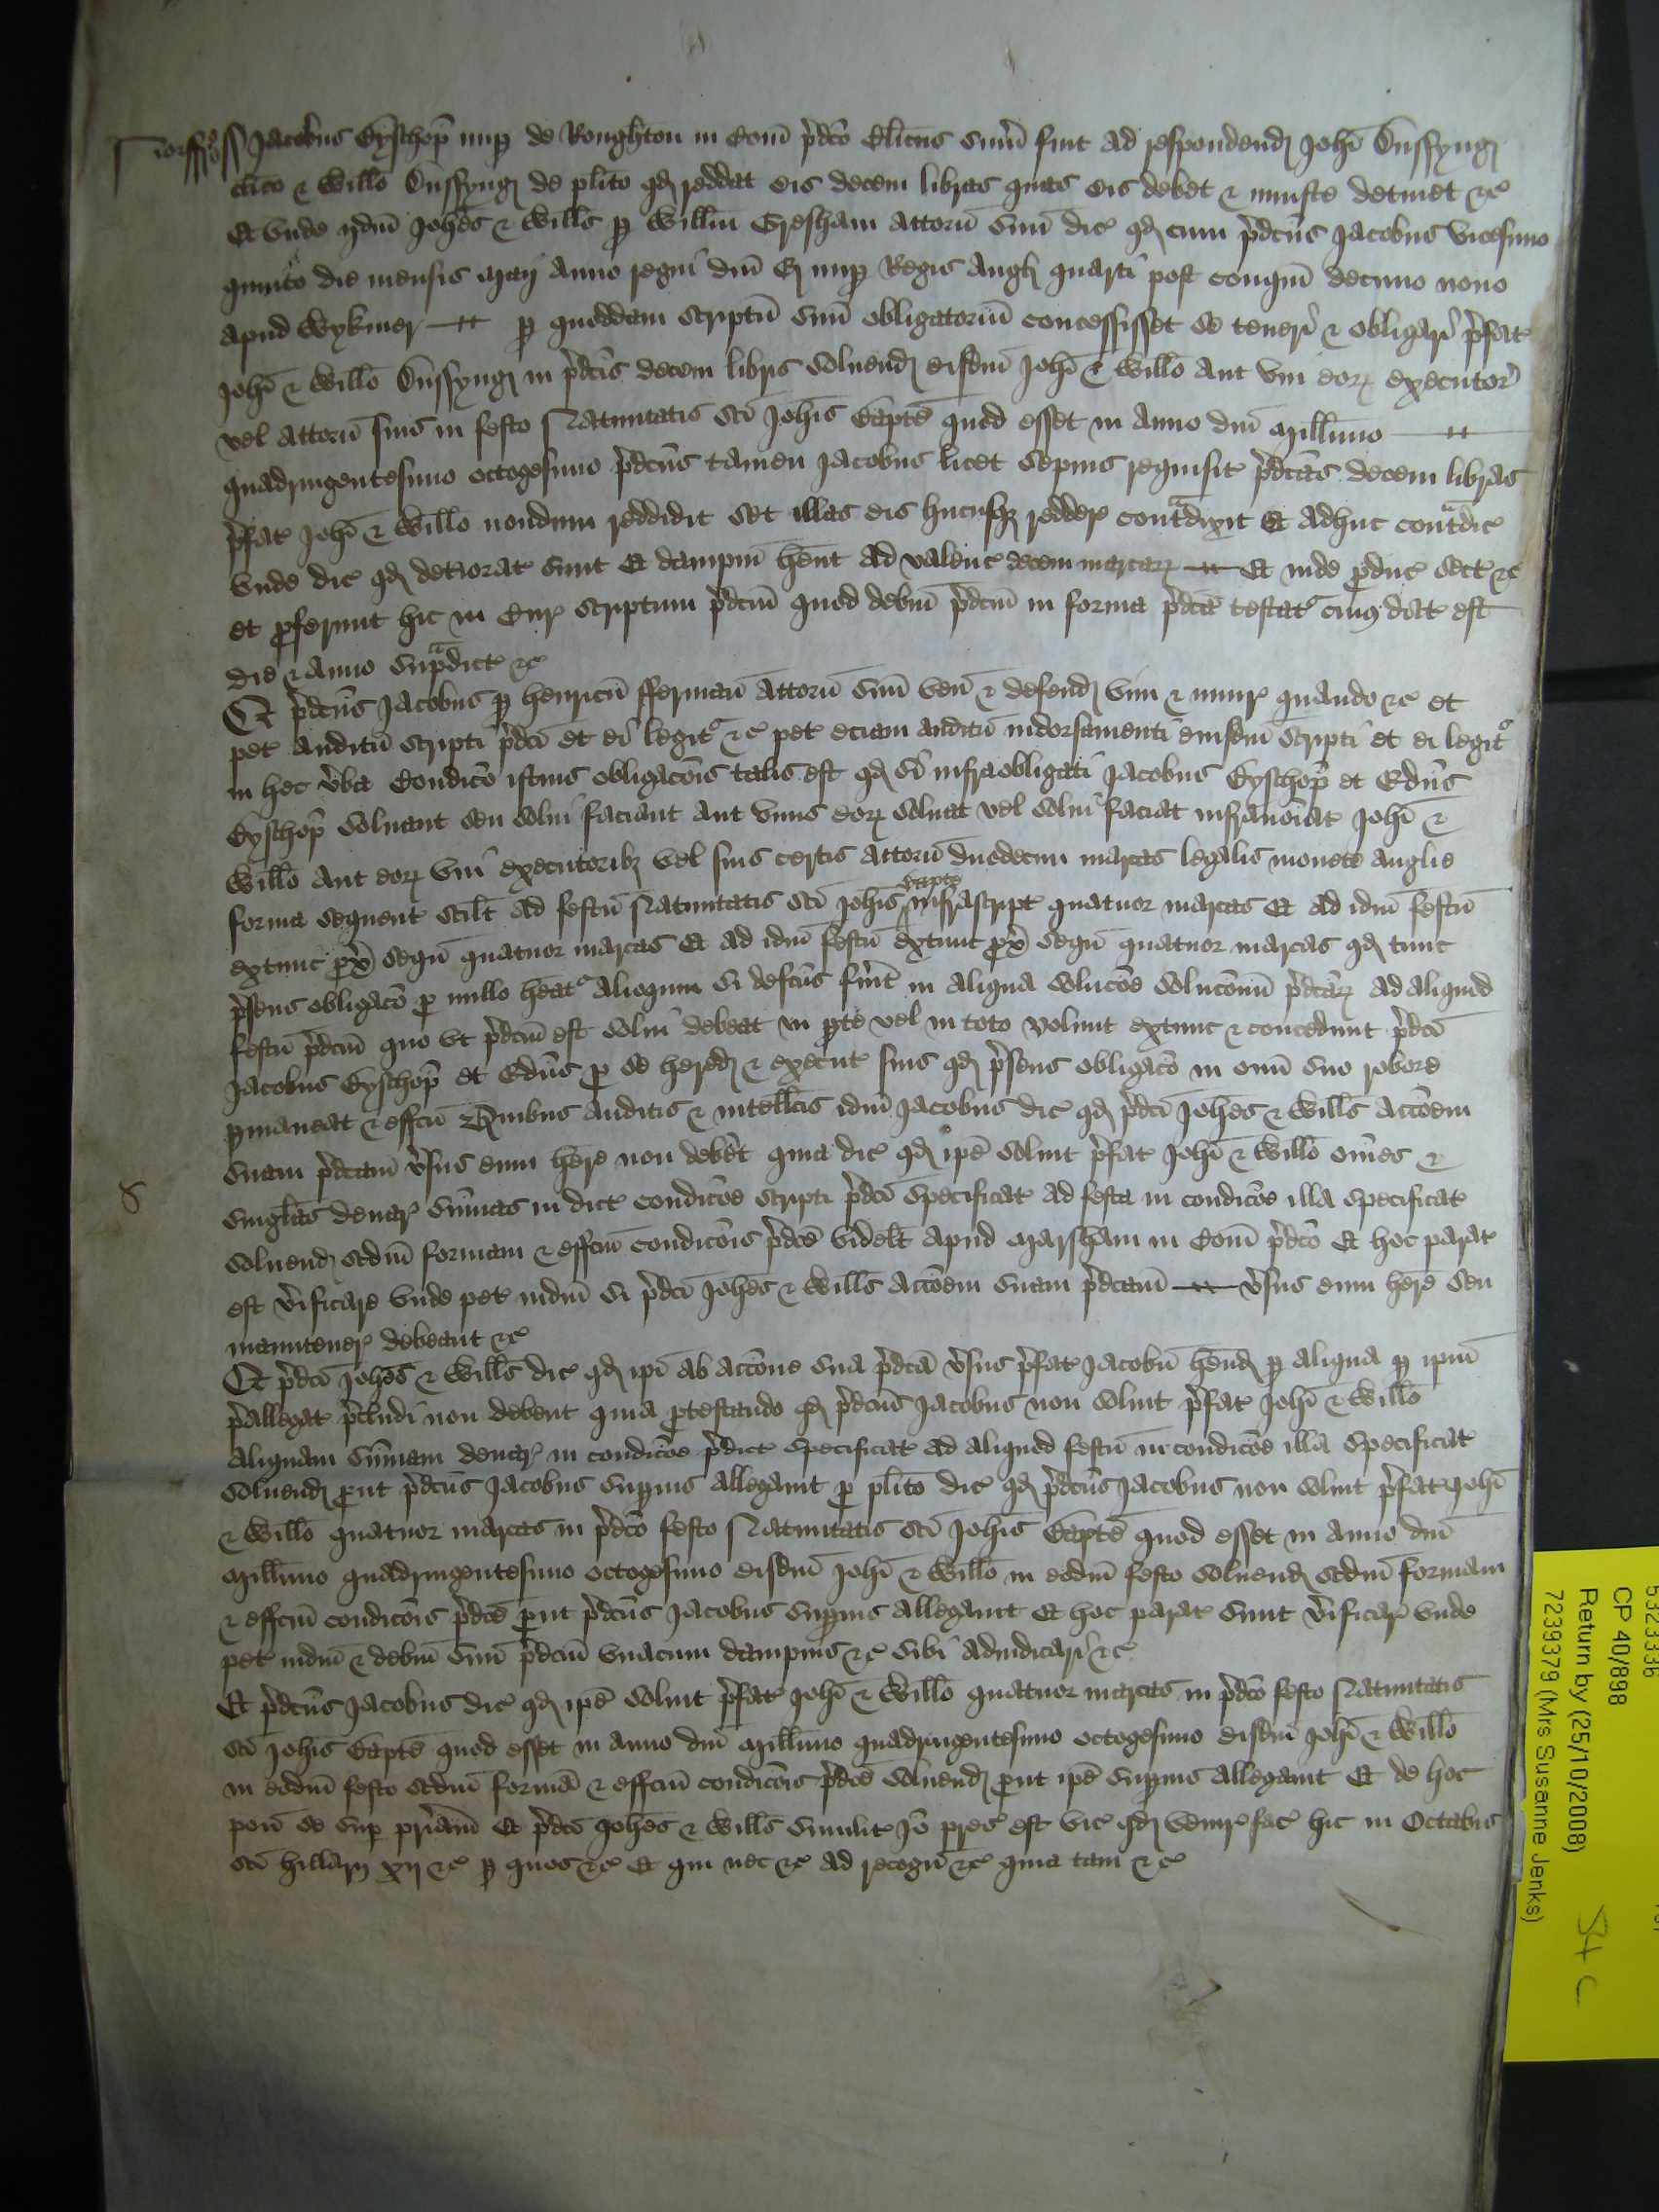 Norff ss Jacobus Byschop̄ nup̱ de Roughton in Com̄ p̄dc̄o Cl̄icus sum̄ fuit ad respondend̄ Joh̄i Dussynḡ
cl̄ico ⁊ Will̄o Dussynḡ de pl̄ito qd̄ reddat eis decem libras quas eis debet ⁊ iniuste detinet ⁊c̄
Et vnde ijdm̄ Joh̄es ⁊ Will̄s p̱ Will̄m Gresham attorn̄ suū dic̄ qd̄ cum p̄dc̄us Jacobus vicesimo
quinto die mensis Maij anno regni dn̄i E nup̱ Regis Angl̄ quarti post conqm̄ decimo nono
apud Wykmer p̱ quoddam scriptū suū obligatoriū concessisset se teneri ⁊ obligari p̄fat̄
Joh̄i ⁊ Will̄o Dussynḡ in p̄dc̄is decem libris soluend̄ eisdm̄ Joh̄i ⁊ Will̄o aut vni eoꝝ executor̄
vel attorn̄ suis in festo Natiuitatis sc̄i Joh̄is Bapt̄e quod esset in anno dn̄i Mill̄imo
quadringentesimo octogesimo p̄dc̄us tamen Jacobus licet sepius requisit̄ p̄dc̄as decem libras
p̄fat̄ Joh̄i ⁊ Will̄o nondum reddidit set illas eis hucusqꝫ redder̄ cont̄dixit Et adhuc cont̄dic̄
vnde dic̄ qd̄ detiorat̄ sunt Et dampnū h̄ent ad valenc̄ decem marcaꝝ Et inde p̄duc̄ sect̄ ⁊c̄
et p̱ferunt hic in Cur̄ scriptum p̄dc̄m quod debitū p̄dc̄m in forma p̄dc̄a testat̄ cuiꝰ dat̄ est
die ⁊ anno sup̄dict̄ ⁊c̄
Et p̄dc̄us Jacobus p̱ Henricū fferman attorn̄ suū ven̄ ⁊ defend̄ vim ⁊ iniur̄ quando ⁊c̄ et
pet̄ auditū scripti p̄dc̄i et ei legit̄ ⁊c̄ pet̄ eciam auditū indorsamenti eiusdm̄ scripti et ei legit̄
in hec v̄ba Condic̄o istius obligac̄ois talis est qd̄ si infraobligati Jacobus Byschop̄ et Edūs
Byschop̄ soluant seu solui faciant aut vnus eoꝝ soluat vel solui faciat infranoīat̄ Joh̄i ⁊
Will̄o aut eoꝝ vni executoribꝫ vel suis certis attorn̄ duodecim marcas legalis monete Anglie
forma sequent̄ scil̄t ad festū Natiuitatis sc̄i Joh̄is Bapt̄e infrascript̄ quatuor marcas Et ad idm̄ festū
extunc p̱x̄ seqū quatuor marcas Et ad idm̄ festū extunc p̱x̄ seqū quatuor marcas qd̄ tunc
p̄sens obligac̄o p̱ nullo h̄eat̄ Alioquin si defc̄us fu̅it in aliqua soluc̄oe soluc̄onū p̄dc̄aꝝ ad aliquid
festū p̄dc̄m quo vt p̄dc̄m est solui debeat in p̱te vel in toto volunt extunc ⁊ concedunt p̄dc̄i
Jacobus Byschop̄ et Edūs p̱ se hered̄ ⁊ execut̄ suis qd̄ p̄sens obligac̄o in om̄i suo robore
p̱maneat ⁊ effc̄u Quibus auditis ⁊ intell̄cis idm̄ Jacobus dic̄ qd̄ p̄dc̄i Joh̄es ⁊ Will̄s acc̄oem
suam p̄dc̄am v̄sus eum h̄ere non deb̄et quia dic̄ qd̄ ip̄e soluit p̄fat̄ Joh̄i ⁊ Will̄o om̄es ⁊
singl̄as denar̄ sūmas in dict̄ condic̄oe scripti p̄dc̄i specificat̄ ad festa in condic̄oe illa specificat̄
soluend̄ scdm̄ formam ⁊ effc̄um condic̄ois p̄dc̄e videl̄t apud Marsham in Com̄ p̄dc̄o Et hoc parat̄
est v̄ificare vnde pet̄ iudm̄ si p̄dc̄i Joh̄es ⁊ Will̄s acc̄oem suam p̄dc̄am v̄sus eum h̄ere seu
manutener̄ debeant ⁊c̄
Et p̄dc̄i Joh̄es ⁊ Will̄s dic̄ qd̄ ip̄i ab acc̄one sua p̄dc̄a v̄sus p̄fat̄ Jacobū h̄end̄ p̱ aliqua p̱ ip̄m
p̄allegat̄ p̄cludi non debent quia p̱testando qd̄ p̄dc̄us Jacobus non soluit p̄fat̄ Joh̄i ⁊ Will̄o
aliquam sūmam denar̄ in condic̄oe p̄dict̄ specificat̄ ad aliquod festū in condic̄oe illa specificat̄
soluend̄ p̱ut p̄dc̄us Jacobus sup̱ius allegauit p̱ pl̄ito dic̄ qd̄ p̄dc̄us Jacobus non soluit p̄fat̄ Joh̄i
⁊ Will̄o quatuor marcas in p̄dc̄o festo Natiuitatis sc̄i Joh̄is Bapt̄e quod esset in anno dn̄i
Mill̄imo quadringentesimo octogesimo eisdm̄ Joh̄i ⁊ Will̄o in eodm̄ festo soluend̄ scdm̄ formam
⁊ effc̄um condic̄ois p̄dc̄e p̱ut p̄dc̄us Jacobus sup̱ius allegauit Et hoc parat̄ sunt v̄ificar̄ vnde
pet̄ iudm̄ ⁊ debitū suū p̄dc̄m vnacum dampnis ⁊c̄ sibi adiudicari ⁊c̄
Et p̄dc̄us Jacobus dic̄ qd̄ ip̄e soluit p̄fat̄ Joh̄i ⁊ Will̄o quatuor marcas in p̄dc̄o festo Natiuitatis
sc̄i Joh̄is Bapt̄e quod esset in anno dn̄i Mill̄imo quadringentesimo octogesimo eisdm̄ Joh̄i ⁊ Will̄o
in eodm̄ festo scdm̄ formā ⁊ effc̄um condic̄ois p̄dc̄e soluend̄ p̱ut ip̄e sup̱ius allegauit Et de hoc
pon̄ se sup̱ pr̄iam Et p̄dc̄i Joh̄es ⁊ Will̄s similit̄ Jō prec̄ est vic̄ qd̄ venir̄ fac̄ hic in Octabis
sc̄i Hillarij xij ⁊c̄ p̱ quos ⁊c̄ Et qui nec ⁊c̄ ad recogn̄ ⁊c̄ quia tam ⁊c̄
5323336
CP 40/898
Return by (25/10/2008)
7239379 (Mrs Susanne Jenks)